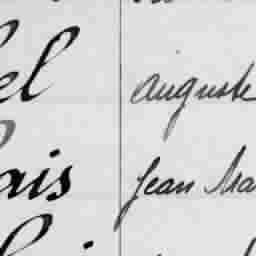 el auguste
ais Jean Ma